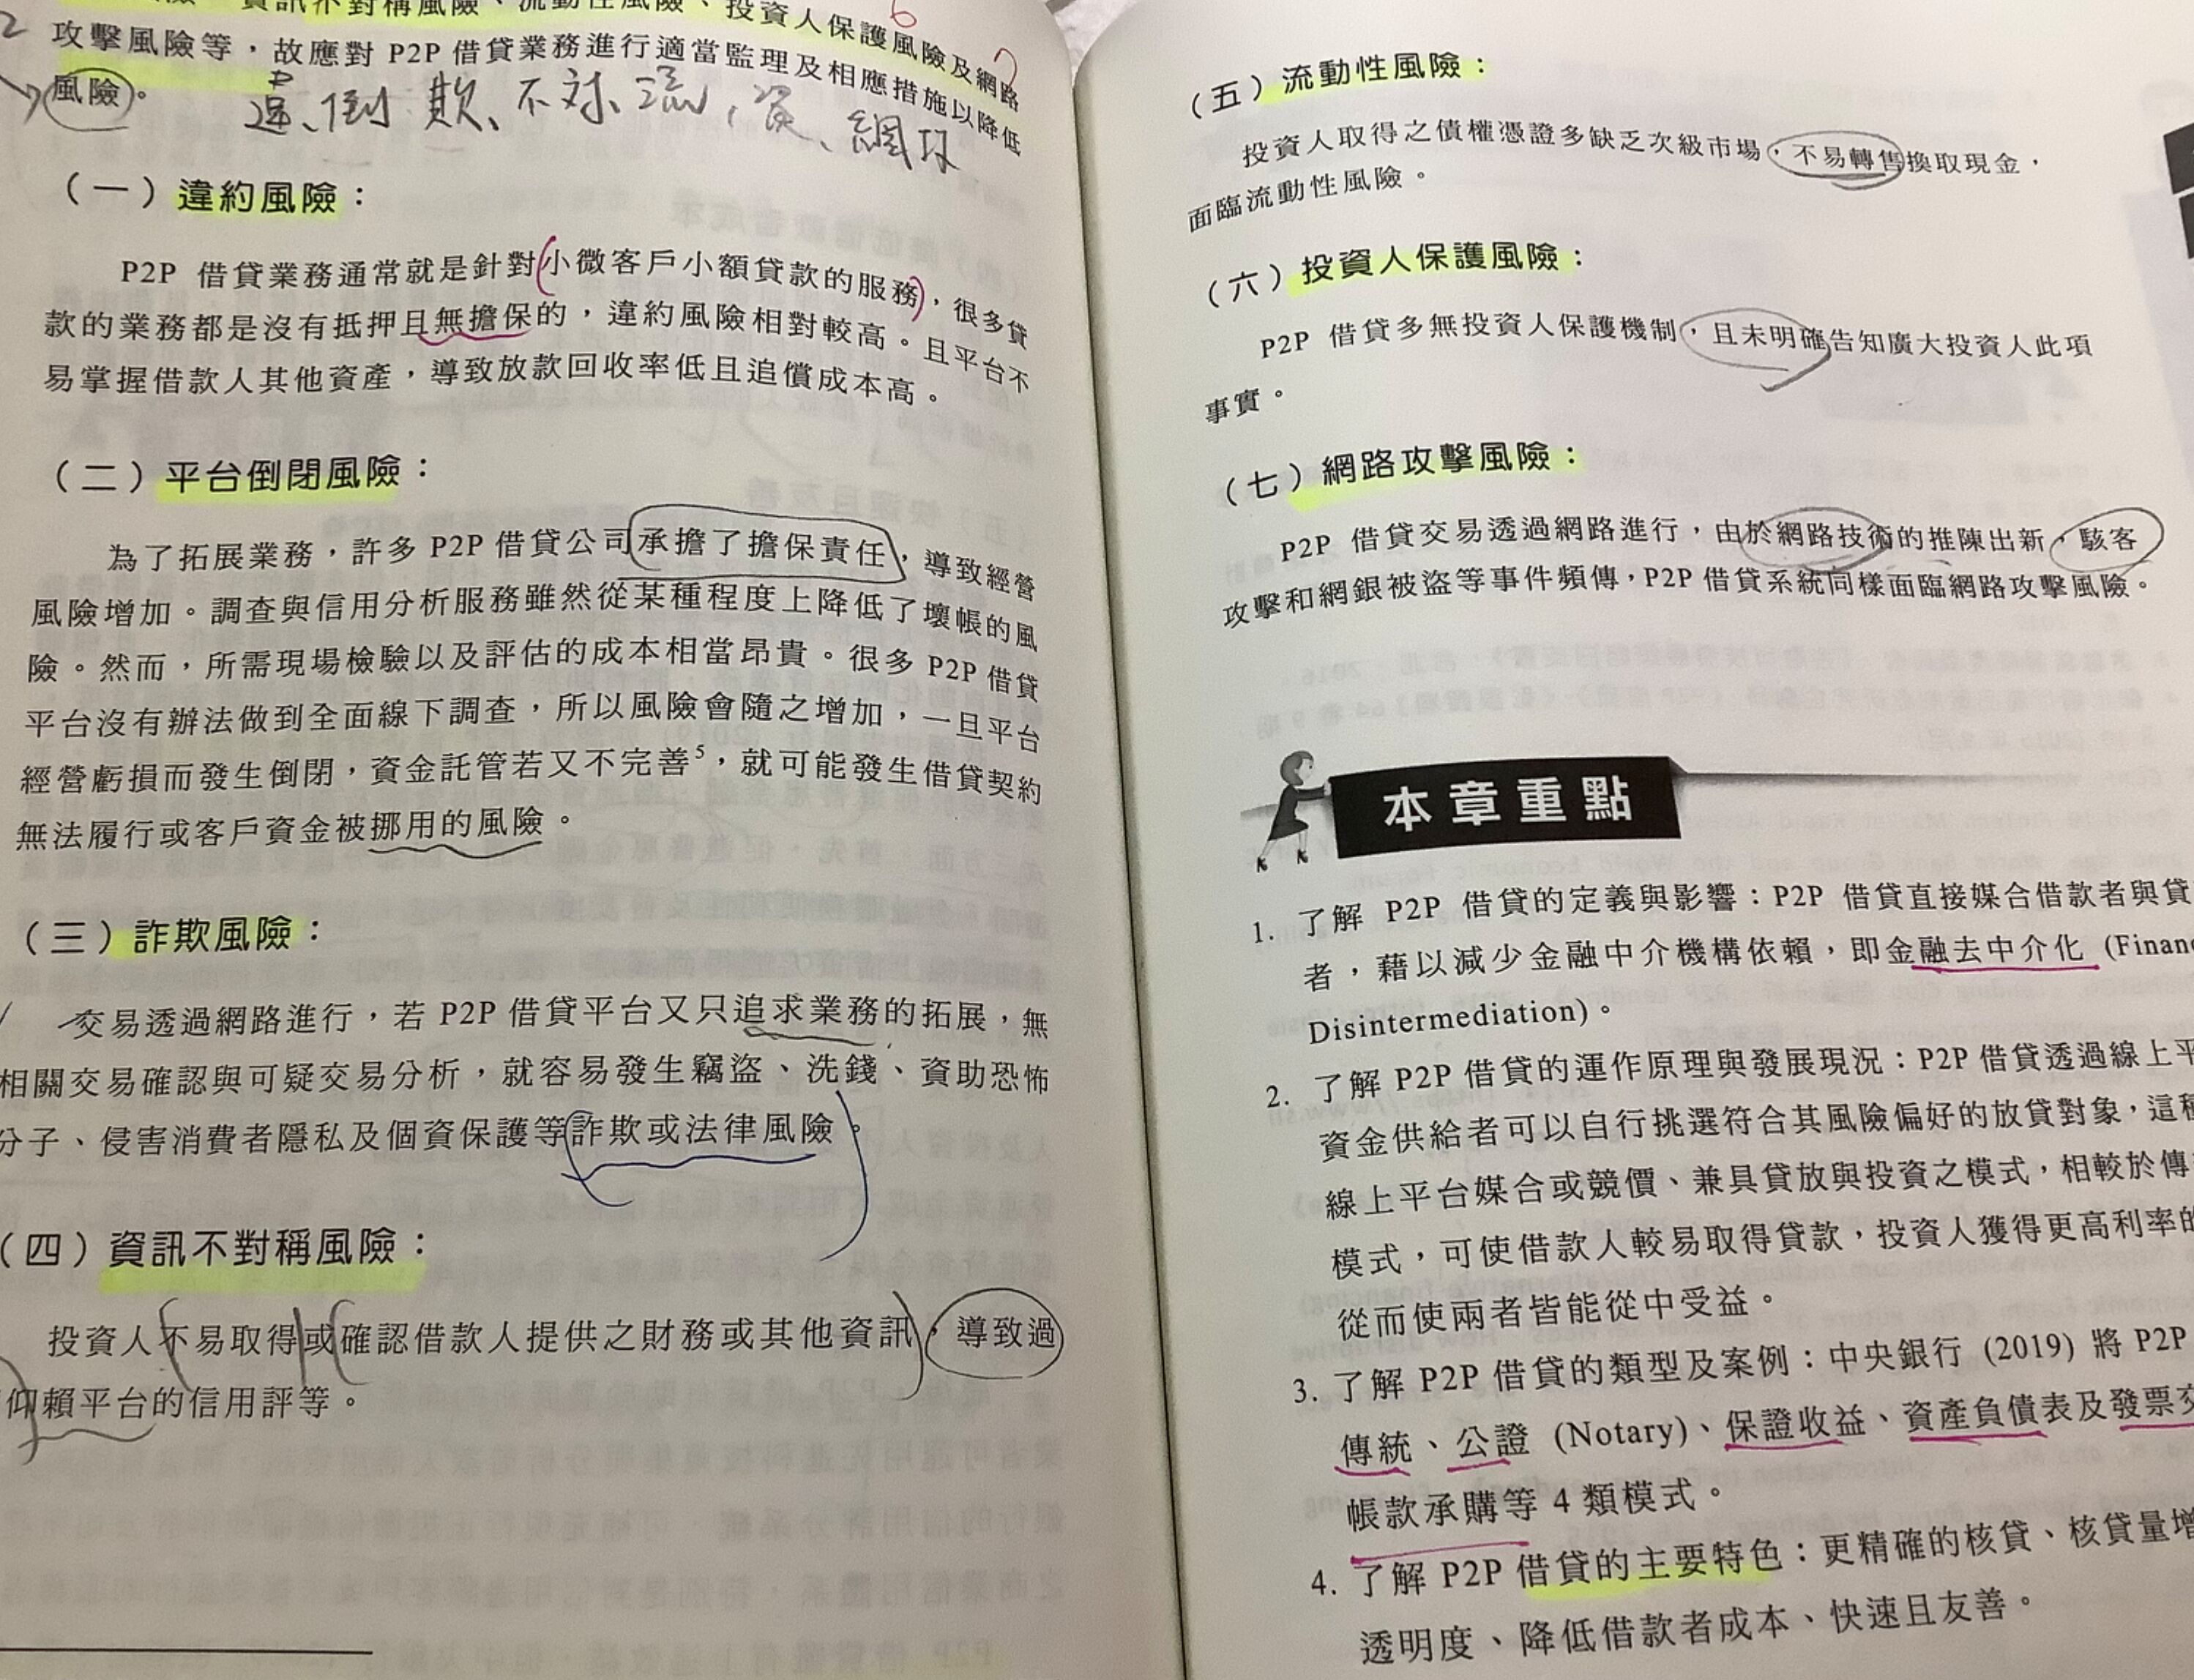 資訊不對稱風險、流動性風險、投資人保護風險及網路
6
7
2
攻擊風險等，故應對 P2P 借貸業務進行適當監理及相應措施以降低
風險。
倒 欺、不对、流、資、網攻
（一）違約風險：
P2P 借貸業務通常就是針對小微客戶小額貸款的服務，很多貸
款的業務都是沒有抵押且無擔保的，違約風險相對較高。且平台不
易掌握借款人其他資產，導致放款回收率低且追償成本高。
（二）平台倒閉風險：
為了拓展業務，許多 P2P 借貸公司承擔了擔保責任，導致經營
風險增加。調查與信用分析服務雖然從某種程度上降低了壞帳的風
險。然而，所需現場檢驗以及評估的成本相當昂貴。很多 P2P 借貸
平台沒有辦法做到全面線下調查，所以風險會隨之增加，一旦平台
經營虧損而發生倒閉，資金託管若又不完善5，就可能發生借貸契約
無法履行或客戶資金被挪用的風險。
（三）詐欺風險：
交易透過網路進行，若 P2P 借貸平台又只追求業務的拓展，無
相關交易確認與可疑交易分析，就容易發生竊盜、洗錢、資助恐怖
分子、侵害消費者隱私及個資保護等詐欺或法律風險。
（四）資訊不對稱風險：
投資人不易取得或確認借款人提供之財務或其他資訊，導致過
仰賴平台的信用評等。
（五）流動性風險：
投資人取得之債權憑證多缺乏次級市場，不易轉售換取現金，
面臨流動性風險。
（六）投資人保護風險：
P2P 借貸多無投資人保護機制，且未明確告知廣大投資人此項
事實。
（七）網路攻擊風險：
P2P 借貸交易透過網路進行，由於網路技術的推陳出新，駭客
攻擊和網銀被盜等事件頻傳，P2P 借貸系統同樣面臨網路攻擊風險。
本章重點
1. 了解 P2P 借貸的定義與影響：P2P 借貸直接媒合借款者與貸
者，藉以減少金融中介機構依賴，即金融去中介化 (Financ
Disintermediation)。
2. 了解 P2P 借貸的運作原理與發展現況：P2P 借貸透過線上平
資金供給者可以自行挑選符合其風險偏好的放貸對象，這種
線上平台媒合或競價、兼具貸放與投資之模式，相較於傳
模式，可使借款人較易取得貸款，投資人獲得更高利率的
從而使兩者皆能從中受益。
3. 了解 P2P 借貸的類型及案例：中央銀行 (2019) 將 P2P
傳統、公證 (Notary)、保證收益、資產負債表及發票交
帳款承購等 4 類模式。
4. 了解 P2P 借貸的主要特色：更精確的核貸、核貸量增
透明度、降低借款者成本、快速且友善。